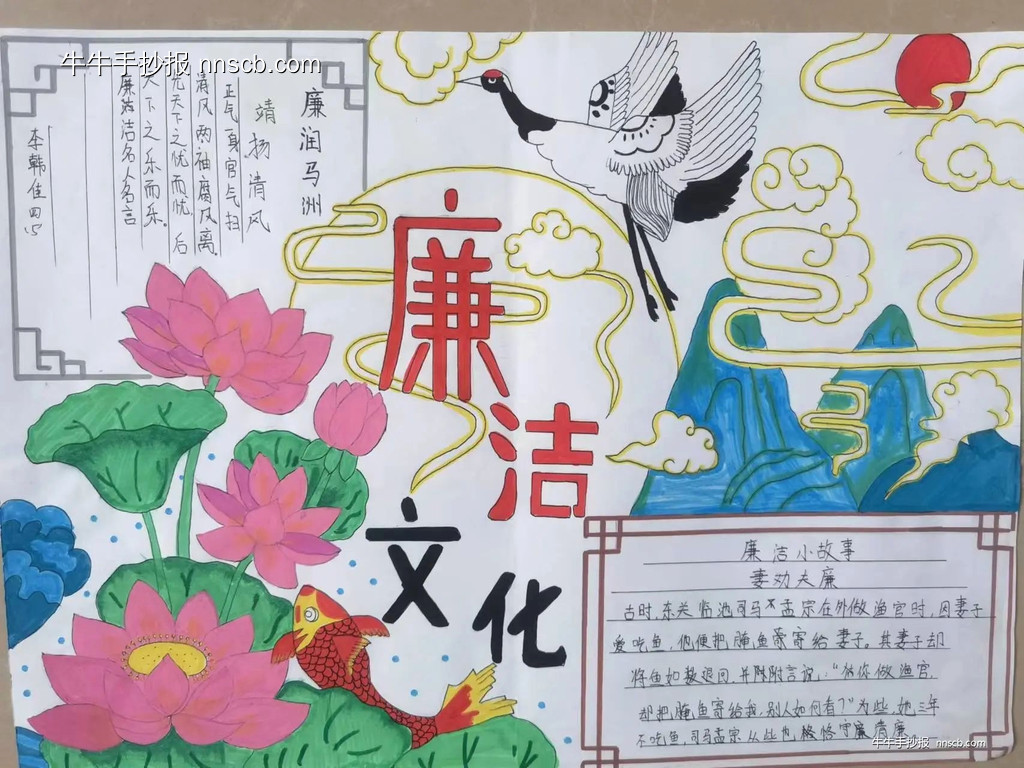 牛牛手抄报 nnscb.com
廉润马洲
靖扬清风
正气一身官气扫
清风两袖腐风离.
先天下之忧而忧, 后
天下之乐而乐.
廉洁名人名言
李韩佳 四
廉洁
文化
廉洁小故事
妻劝夫廉
古时,东关临池司马孟宗在外做渔官时,因妻子
爱吃鱼,他便把腌鱼寄给妻子。其妻子却
将鱼如数退回,并附言说:“你做渔官,
却把腌鱼寄给我,别人如何看?”为些,她三年
不吃鱼,司马孟宗从些也恪守廉清廉。
牛牛手抄报 nnscb.com